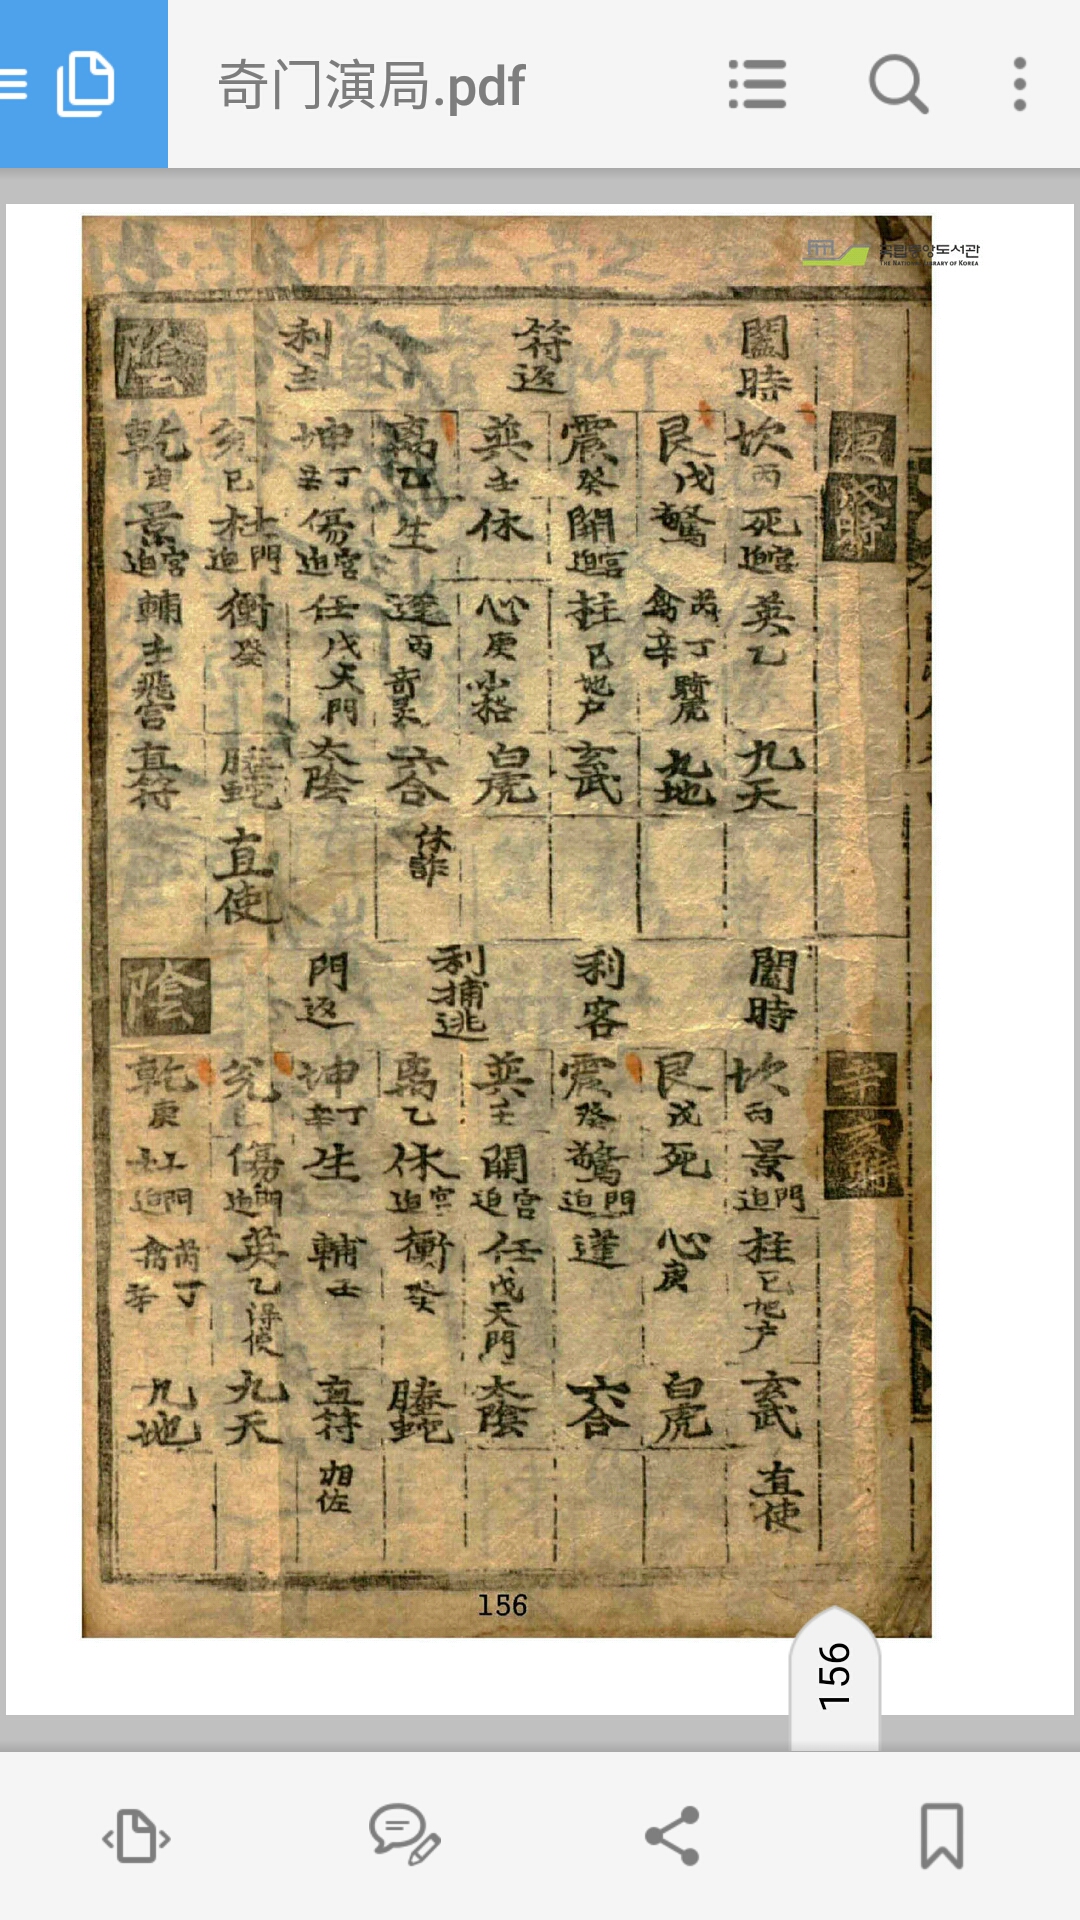 奇门演局.pdf
국립중앙도서관
THE NATIONAL LIBRARY OF KOREA
戌時
闔時
符返
利主
陰
坎丙死宮迫英乙九天
艮戊驚芮丁禽辛騎虎九地
震癸開宮迫柱己地户玄武
巽壬休心庚小格白虎
离乙生蓬丙奇灵六合休詐
坤丁辛傷宮迫任戊天門太陰
兌己杜門迫衝癸螣蛇直使
乾庚景宮迫輔壬飛宮直符
辛
亥時
闔時
利客
利捕逃
門返
陰
坎丙景門迫柱己地户玄武直使
艮戊死心庚白虎
震癸驚門迫蓬六合
巽壬開宮迫任戊天門太陰
离乙休宮迫衝癸螣蛇
坤丁辛生輔壬直符相佐
兌傷門迫英乙得使九天
乾庚杜門迫芮丁禽辛九地
156
156